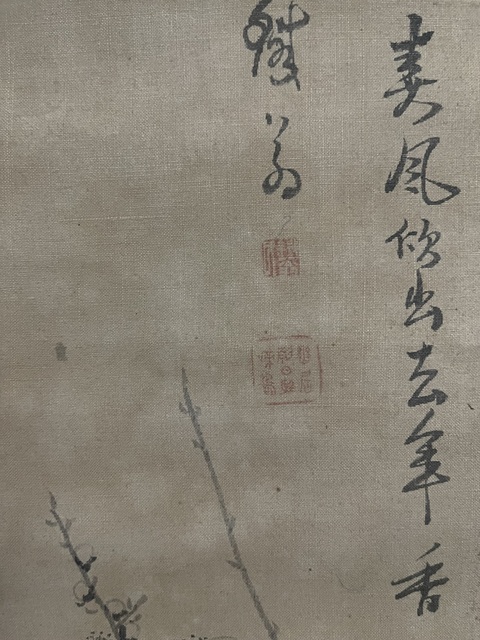 春風吹出去年香
鐵翁